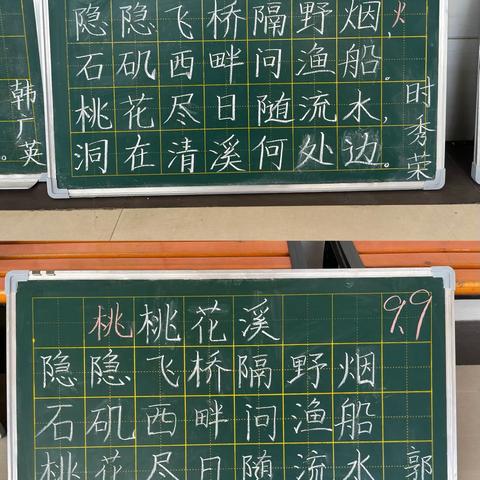 隐隐飞桥隔野烟,
石矶西畔问渔船。
桃花尽日随流水,
洞在清溪何处边。
时秀荣
韩广英
桃桃花溪
9.9
隐隐飞桥隔野烟
石矶西畔问渔船
桃花尽日随流水
郭